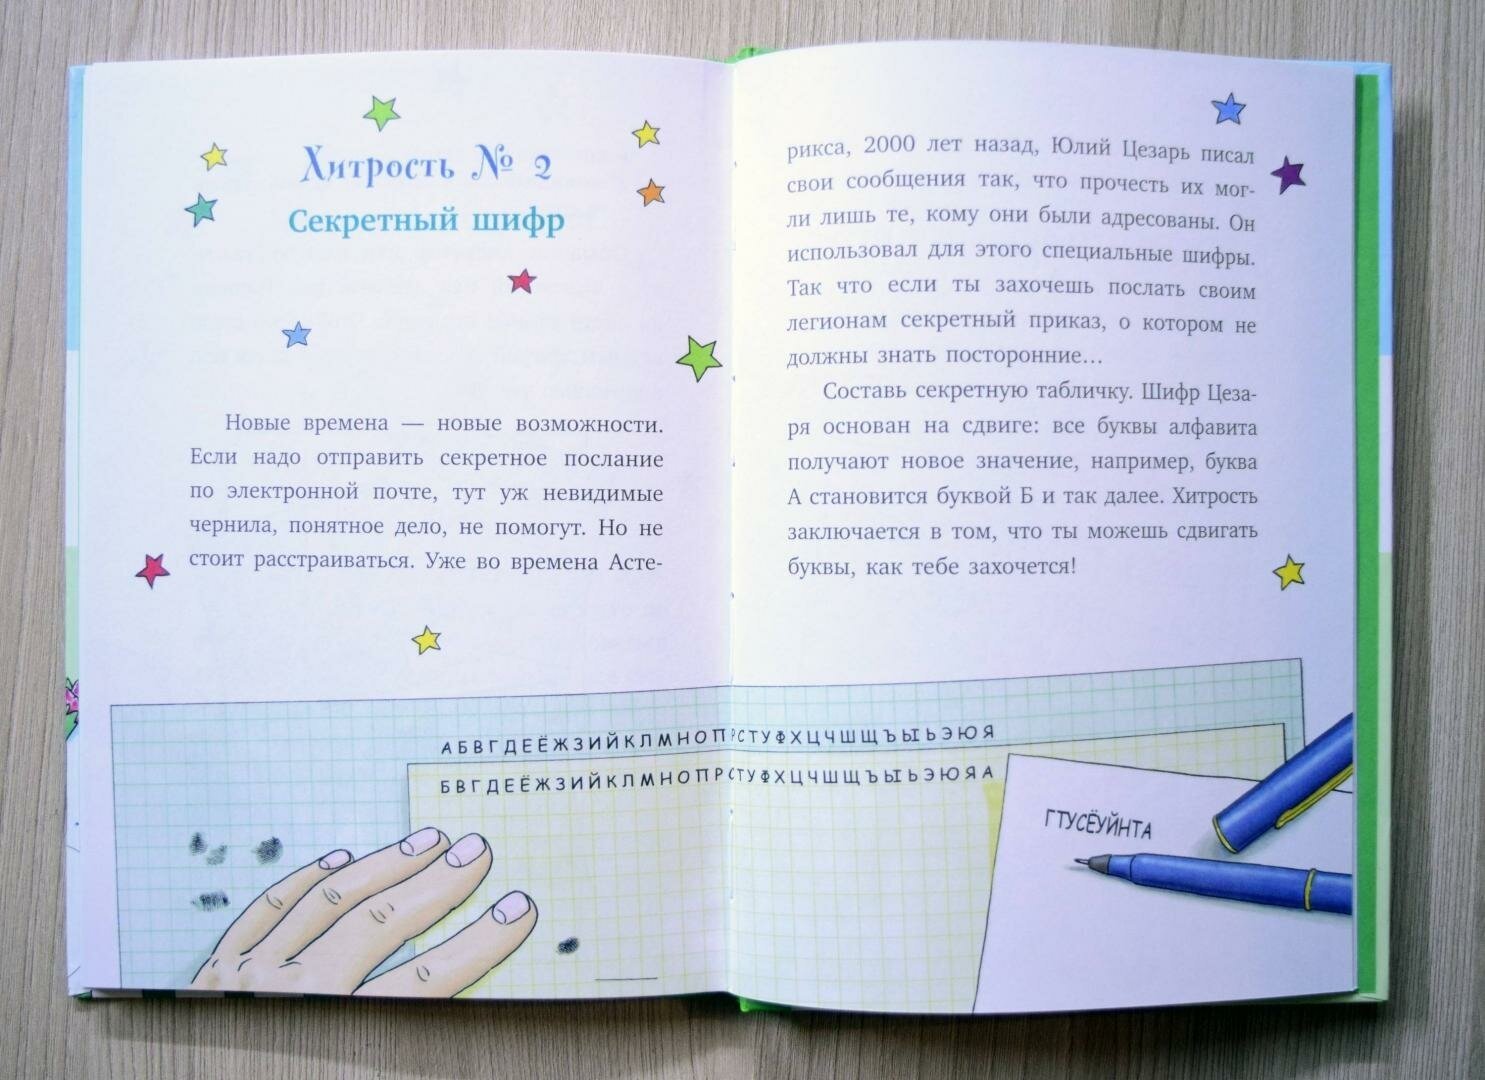 Хитрость № 2
Секретный шифр
Новые времена — новые возможности.
Если надо отправить секретное послание
по электронной почте, тут уж невидимые
чернила, понятное дело, не помогут. Но не
стоит расстраиваться. Уже во времена Асте-
рикса, 2000 лет назад, Юлий Цезарь писал
свои сообщения так, что прочесть их мог-
ли лишь те, кому они были адресованы. Он
использовал для этого специальные шифры.
Так что если ты захочешь послать своим
легионам секретный приказ, о котором не
должны знать посторонние...
Составь секретную табличку. Шифр Цеза-
ря основан на сдвиге: все буквы алфавита
получают новое значение, например, буква
А становится буквой Б и так далее. Хитрость
заключается в том, что ты можешь сдвигать
буквы, как тебе захочется!
АБВГДЕЁЖЗИЙКЛМНОПРСТУФХЦЧШЩЪЫЬЭЮЯ
БВГДЕЁЖЗИЙКЛМНОПРСТУФХЦЧШЩЪЫЬЭЮЯА
ГТУСЁУЙНТА